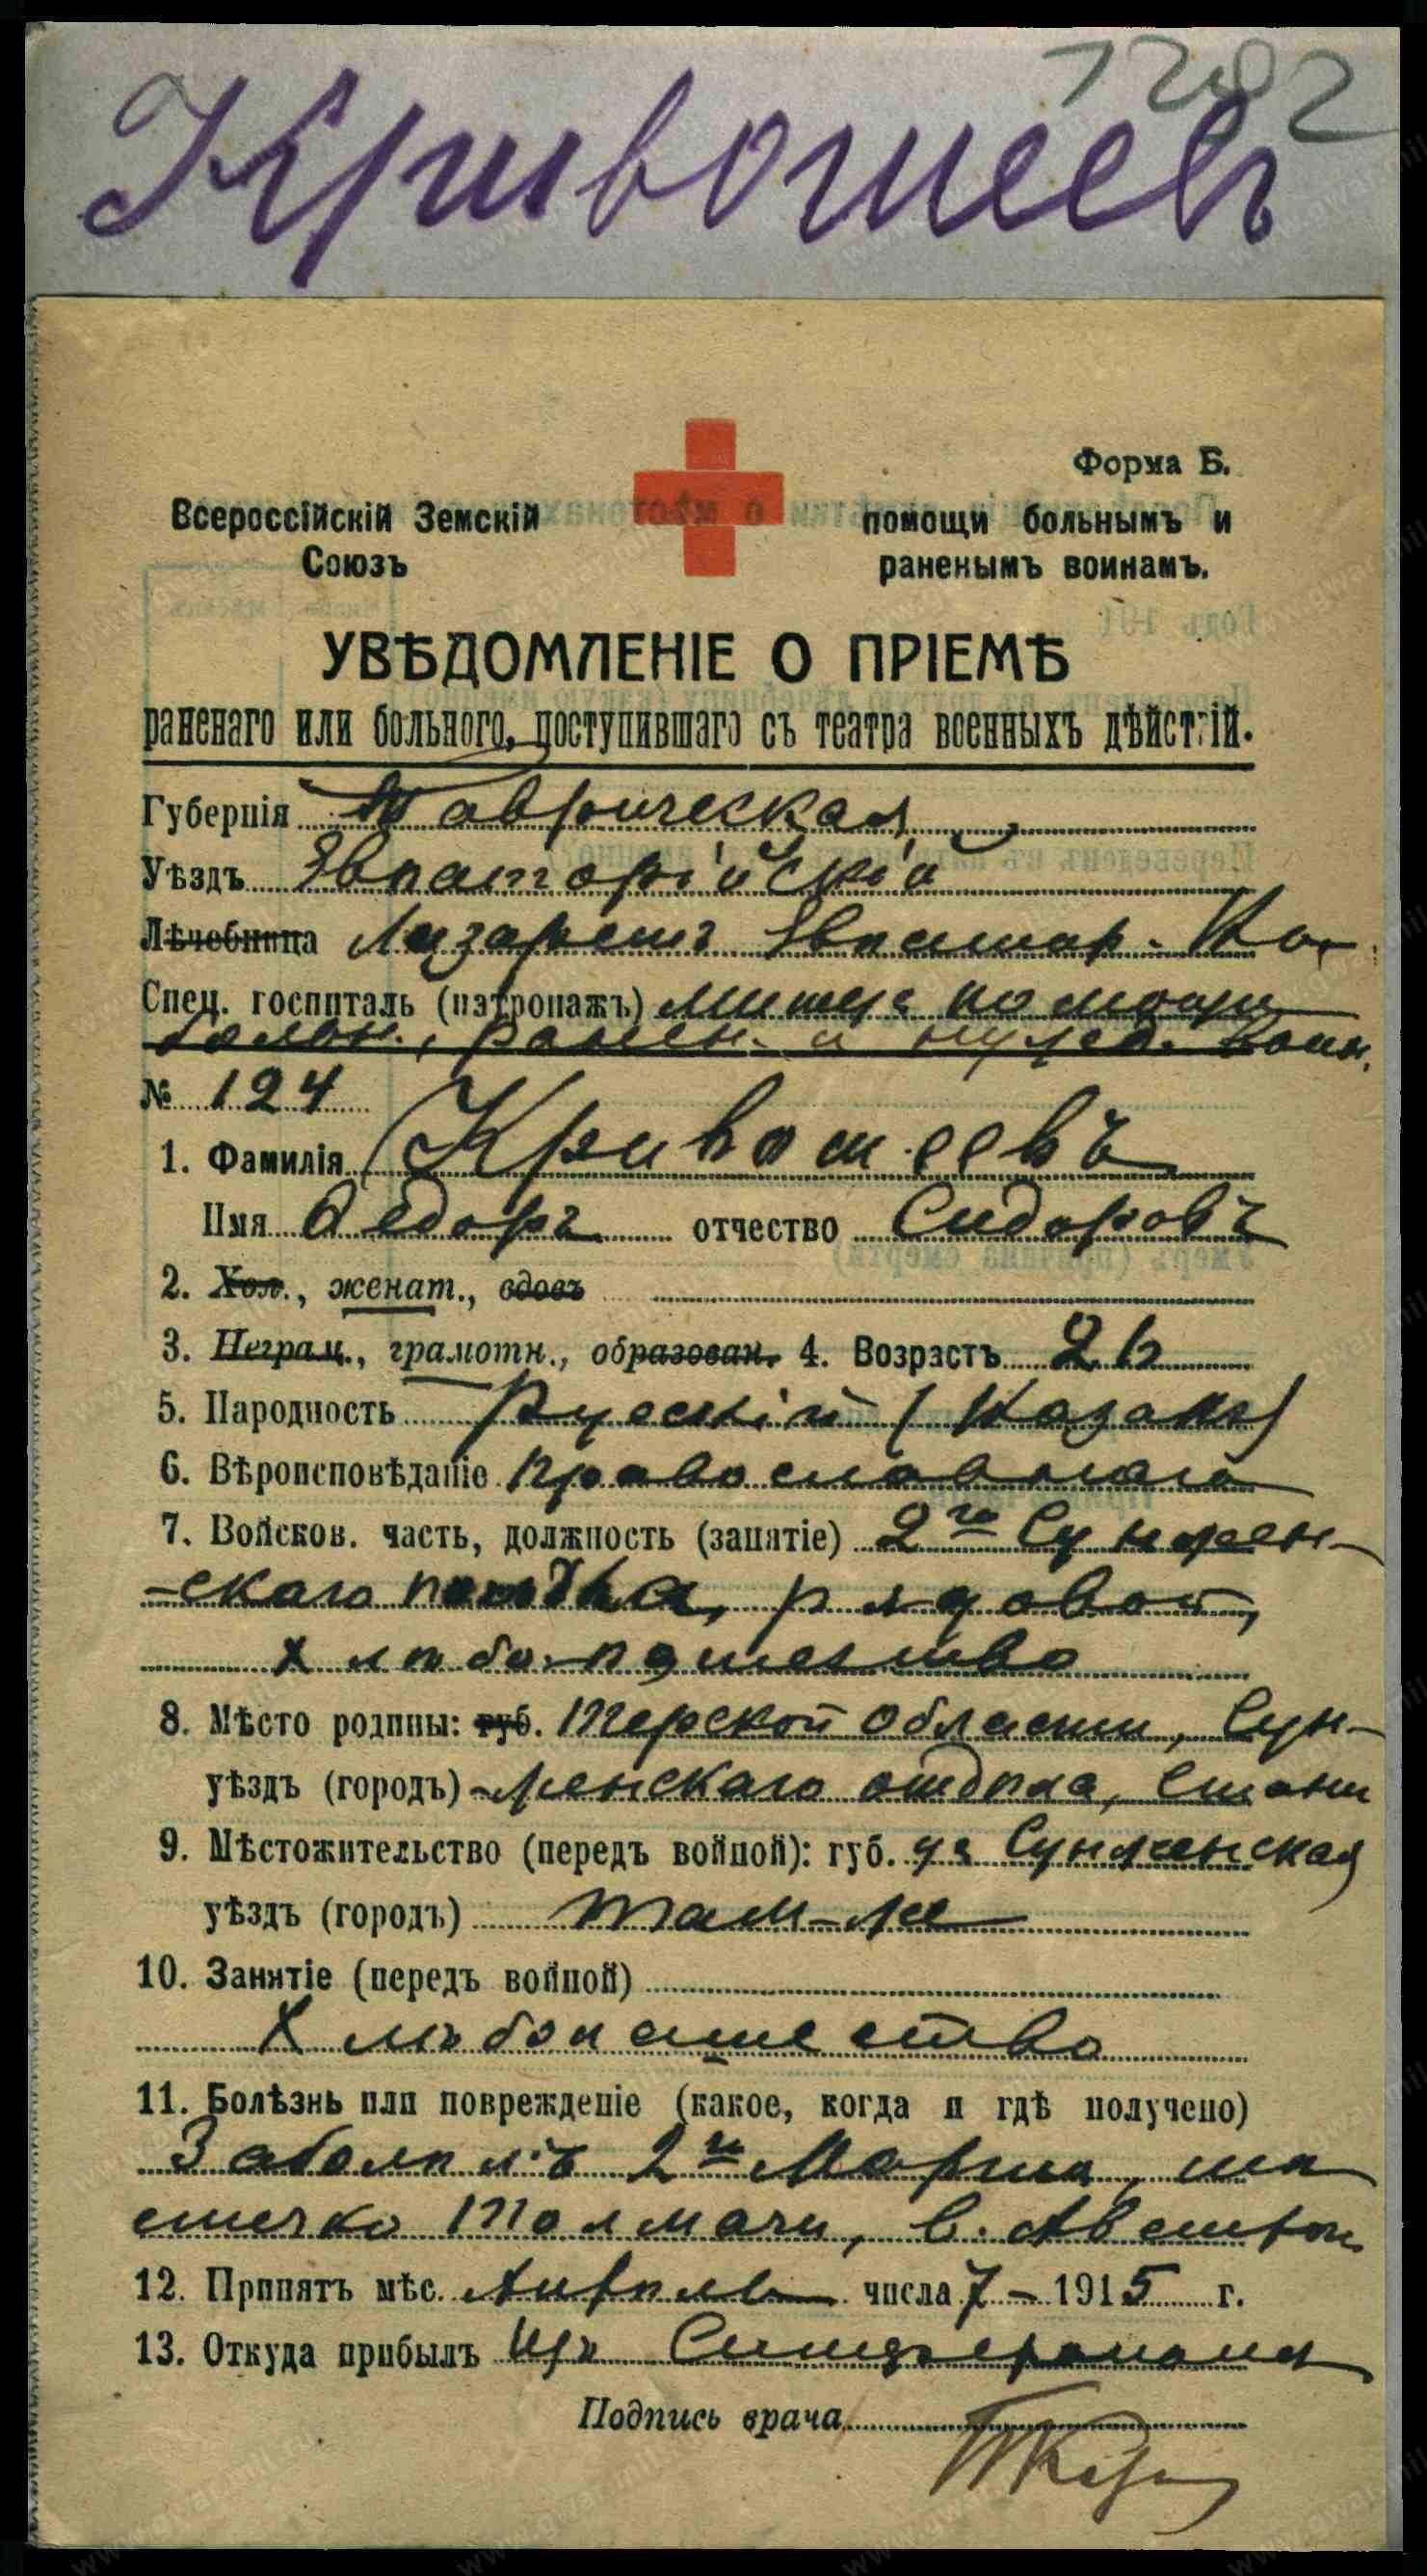 1202
Кривошеев
Форма Б.
Всероссійскій Земскій
Союзъ
помощи больнымъ и
раненымъ воинамъ.
УВѢДОМЛЕНІЕ О ПРІЕМѢ
раненаго или больного, поступившаго съ театра военныхъ дѣйствій.
Губернія Таврическая
Уѣздъ Евпаторійскій
Лѣчебница Лазаретъ Евпатор. Ко-
Спец. госпиталь (патронажъ) митета помощи
больн., ранен. и нужд. воин.
№ 124
1. Фамилія Кривошеевъ
Имя Ѳедоръ отчество Сидоровъ
2. Хол., женат., вдовъ
3. Неграм., грамотн., образован. 4. Возрастъ 26
5. Народность Русскій (Казакъ)
6. Вѣроисповѣданіе Православнаго
7. Войсков. часть, должность (занятіе) 2го Сунжен-
-скаго полка, рядовой,
хлѣбопашество
8. Мѣсто родины: губ. Терской области, Сун-
уѣздъ (городъ) -женскаго отдѣла, стани
9. Мѣстожительство (передъ войной): губ. ца Сунженская
уѣздъ (городъ) там-же
10. Занятіе (передъ войной)
Хлѣбопашество
11. Болѣзнь или поврежденіе (какое, когда и гдѣ получено)
Заболѣлъ 2го Марта, мѣ
стечко Толмачи, в. Австріи
12. Принятъ мѣс. Апрѣль числа 7 - 1915 г.
13. Откуда прибылъ Изъ Симферополя
Подпись врача